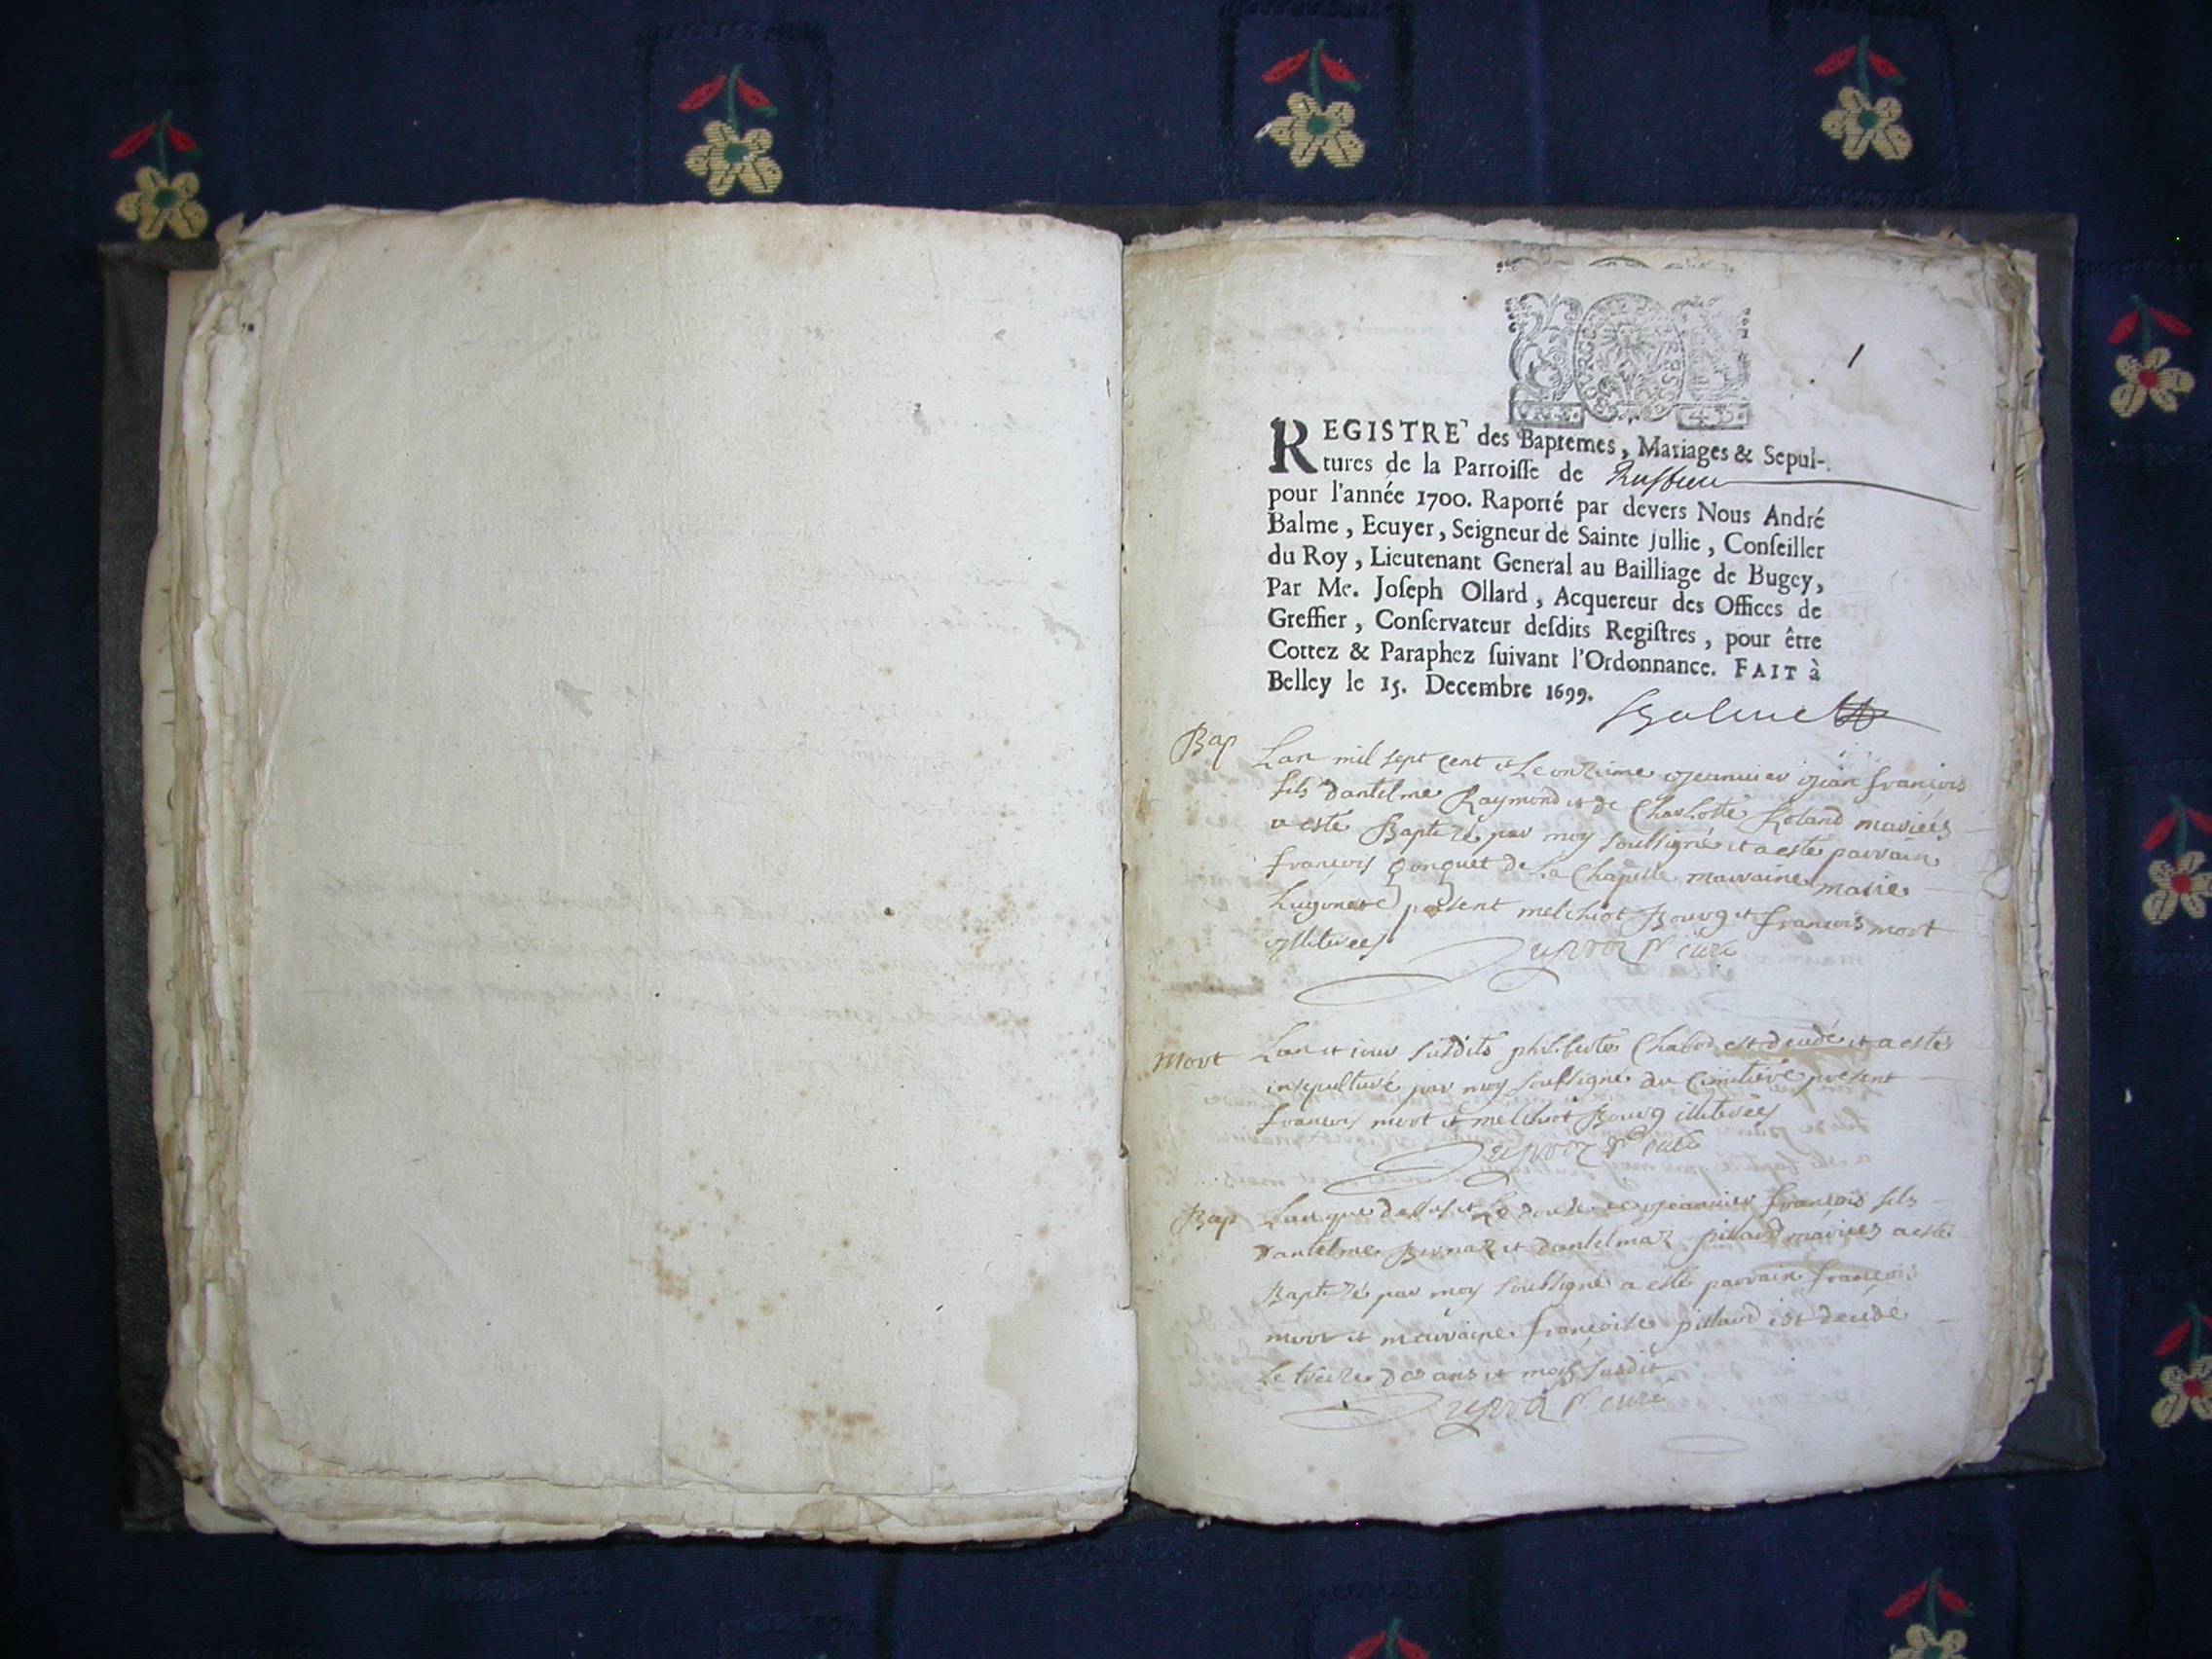 1
BOURG
VRES.
REGISTRE des Baptemes, Mariages & Sepul-
tures de la Parroisse de Ruffieu
pour l'année 1700. Raporté par devers Nous André
Balme, Ecuyer, Seigneur de Sainte Jullie, Conseiller
du Roy, Lieutenant General au Bailliage de Bugey,
Par Me. Joseph Ollard, Acquereur des Offices de
Greffier, Conservateur desdits Registres, pour être
Cottez & Paraphez suivant l'Ordonnance. FAIT à
Belley le 15. Decembre 1699.
Balme
Bap
Lan mil sept cent et le onzieme jeanvier jean françois
fils dantelme Raymond et de Charlotte Roland mariées
a esté Baptizé par moy soubsigné et a esté parrain
françois gonguet de la Chapelle marraine marie
Hugonet present melchiot Bourg et françois mort
illiterees
curé
Mort
Lan et jour susdits philiberte Chabod est decedé et a esté
insepulturé par moy soubsigné au Cimitiere present
françois mort et melchiot Bourg illiterées
curé
Bap
Lan que dessus et le douzieme jeanvier françois fils
dantelme et dantelmaz pillard mariees a esté
Baptizé par moy soubsigné a esté parrain françois
mort et marraine françoise pillard est decedé
le treize des ans et mois susdit
curé